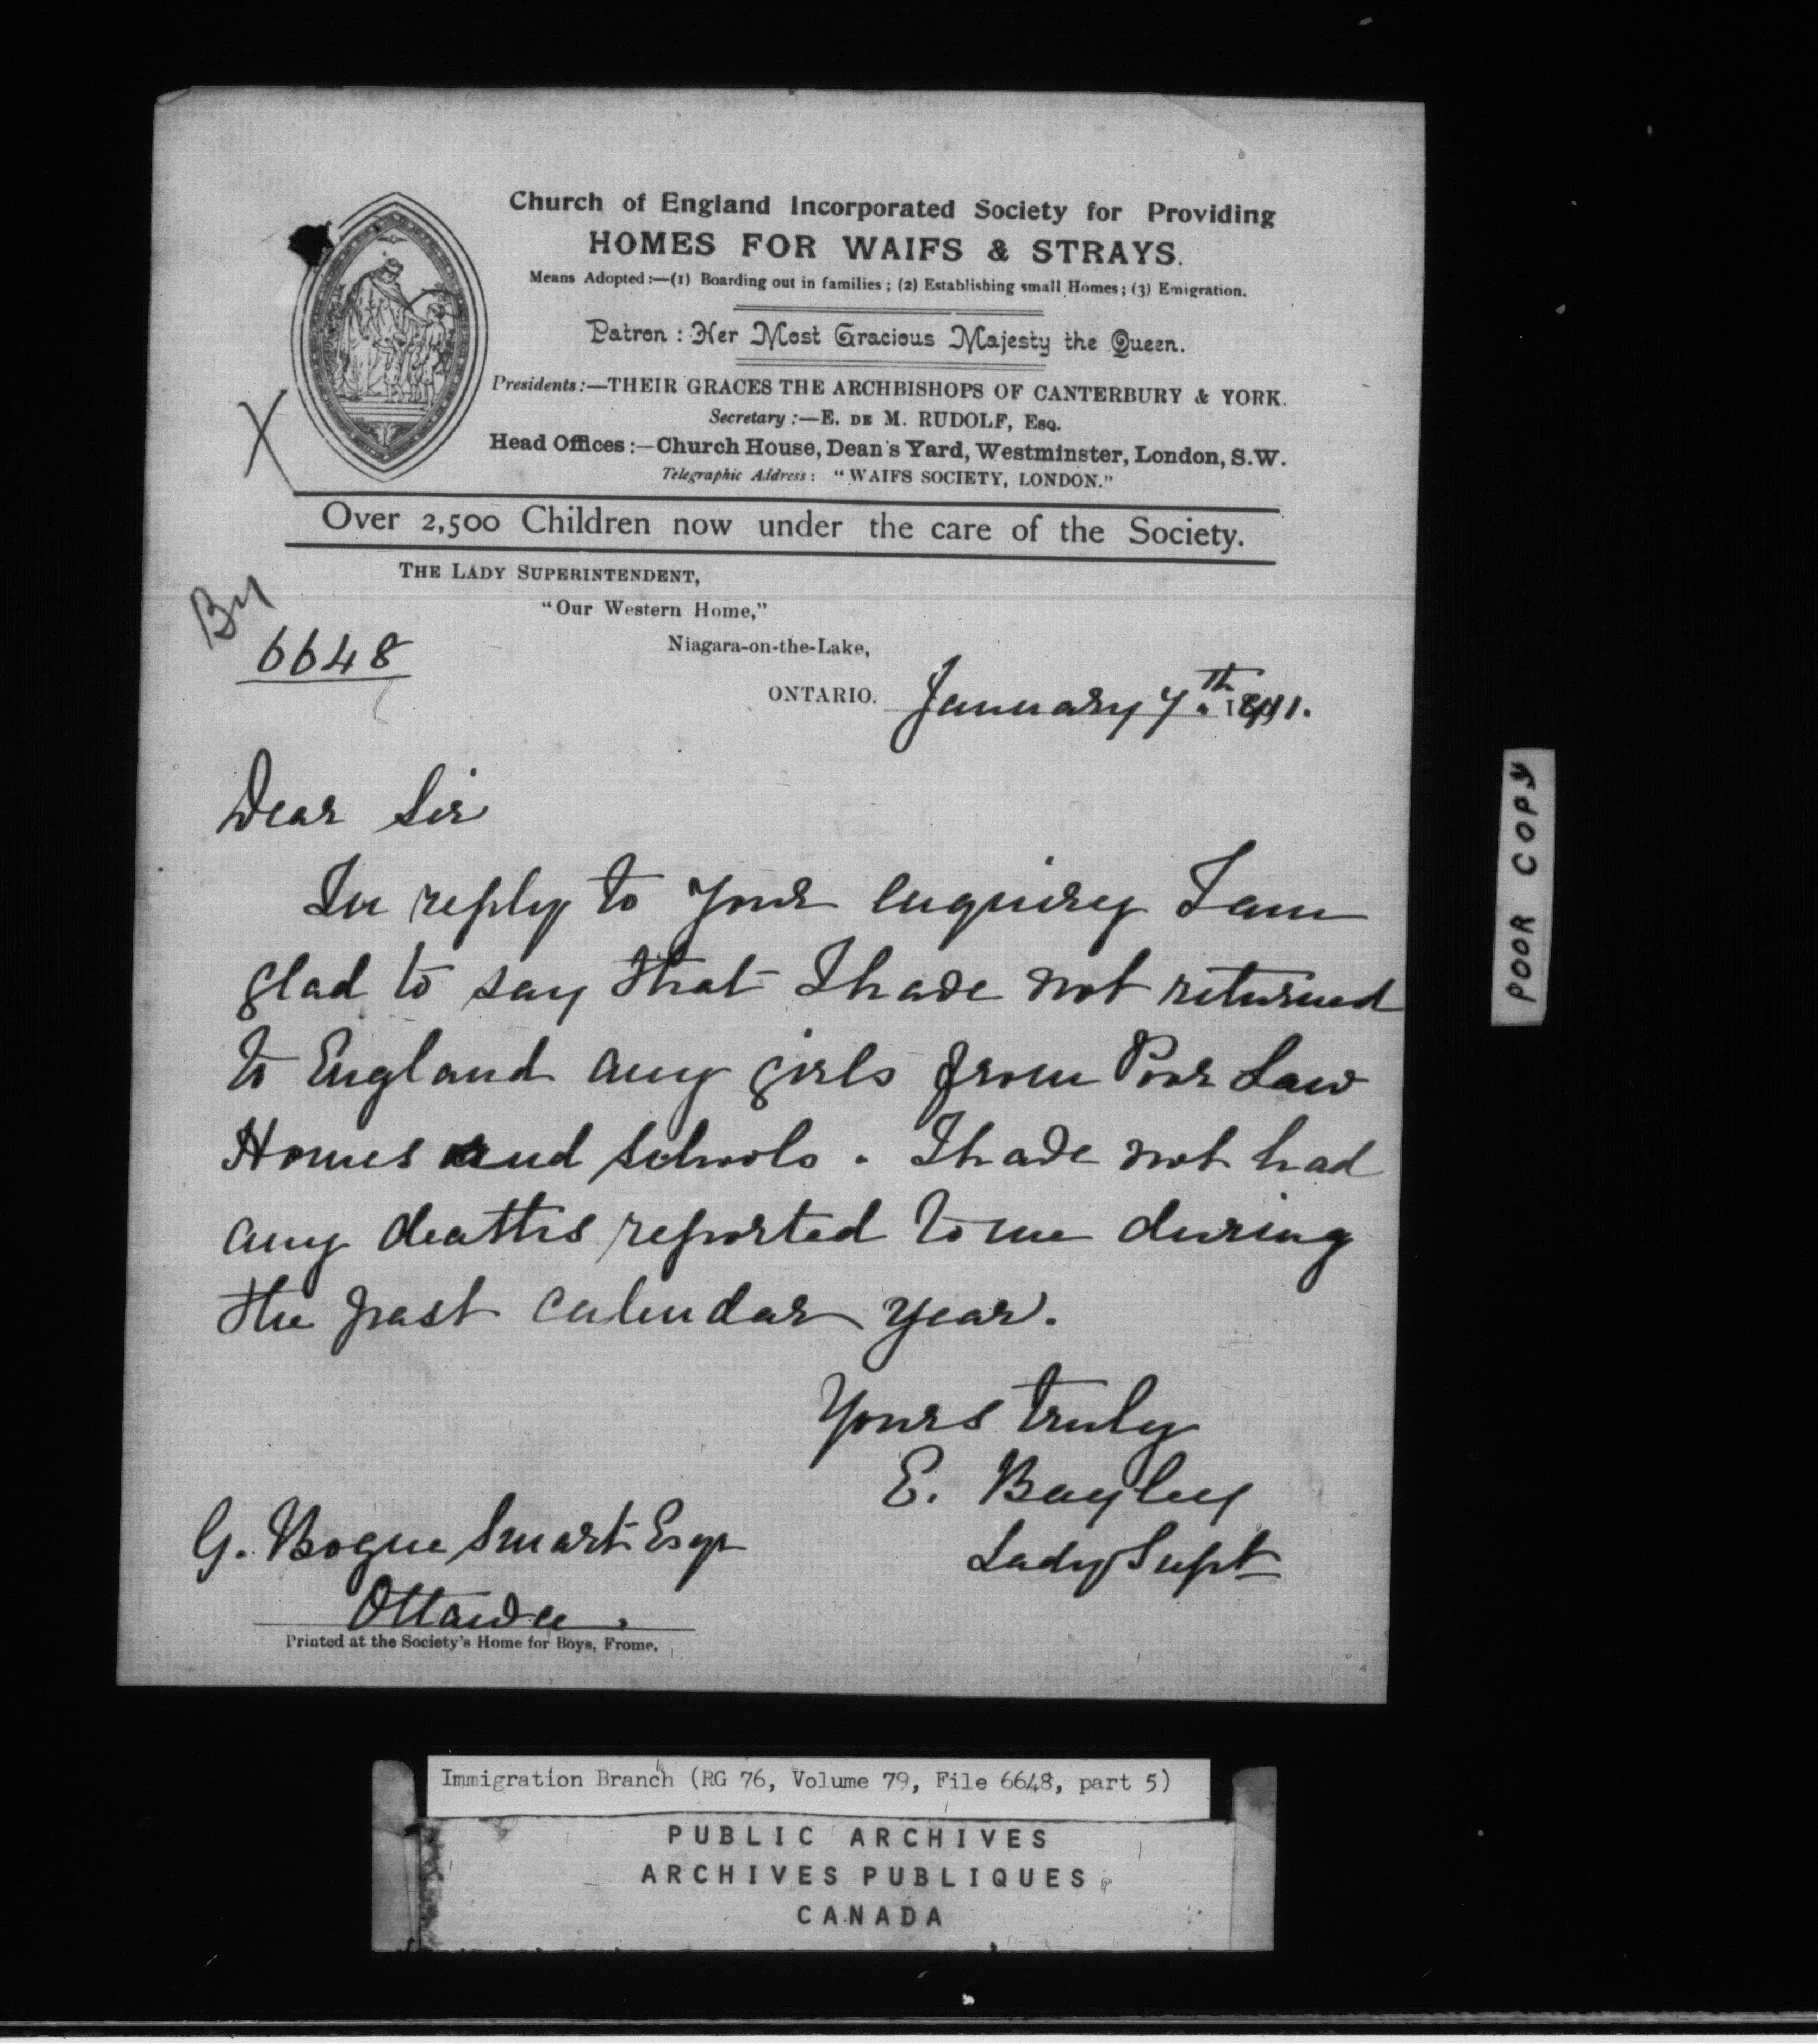 Church of England Incorporated Society for Providing
HOMES FOR WAIFS & STRAYS.
Means Adopted:—(1) Boarding out in families; (2) Establishing small Homes; (3) Emigration.
Patron: Her Most Gracious Majesty the Queen.
Presidents:—THEIR GRACES THE ARCHBISHOPS OF CANTERBURY & YORK.
Secretary:—E. DE M. RUDOLF, Esq.
Head Offices:—Church House, Dean's Yard, Westminster, London, S.W.
Telegraphic Address: "WAIFS SOCIETY, LONDON."
X
Over 2,500 Children now under the care of the Society.
THE LADY SUPERINTENDENT,
"Our Western Home,"
Niagara-on-the-Lake,
6648
ONTARIO. January 7th
Dear Sir
In reply to your enquiry I am
glad to say that I have not returned
to England any girls from Poor Law
Homes and schools. I have not had
any deaths reported to me during
the past calendar year.
Yours truly
E. Bayley
Lady Supt
G. Bogue Smart Esqr
Ottawa.
Printed at the Society's Home for Boys, Frome.
POOR COPY
Immigration Branch (RG 76, Volume 79, File 6648, part 5)
PUBLIC ARCHIVES
ARCHIVES PUBLIQUES
CANADA